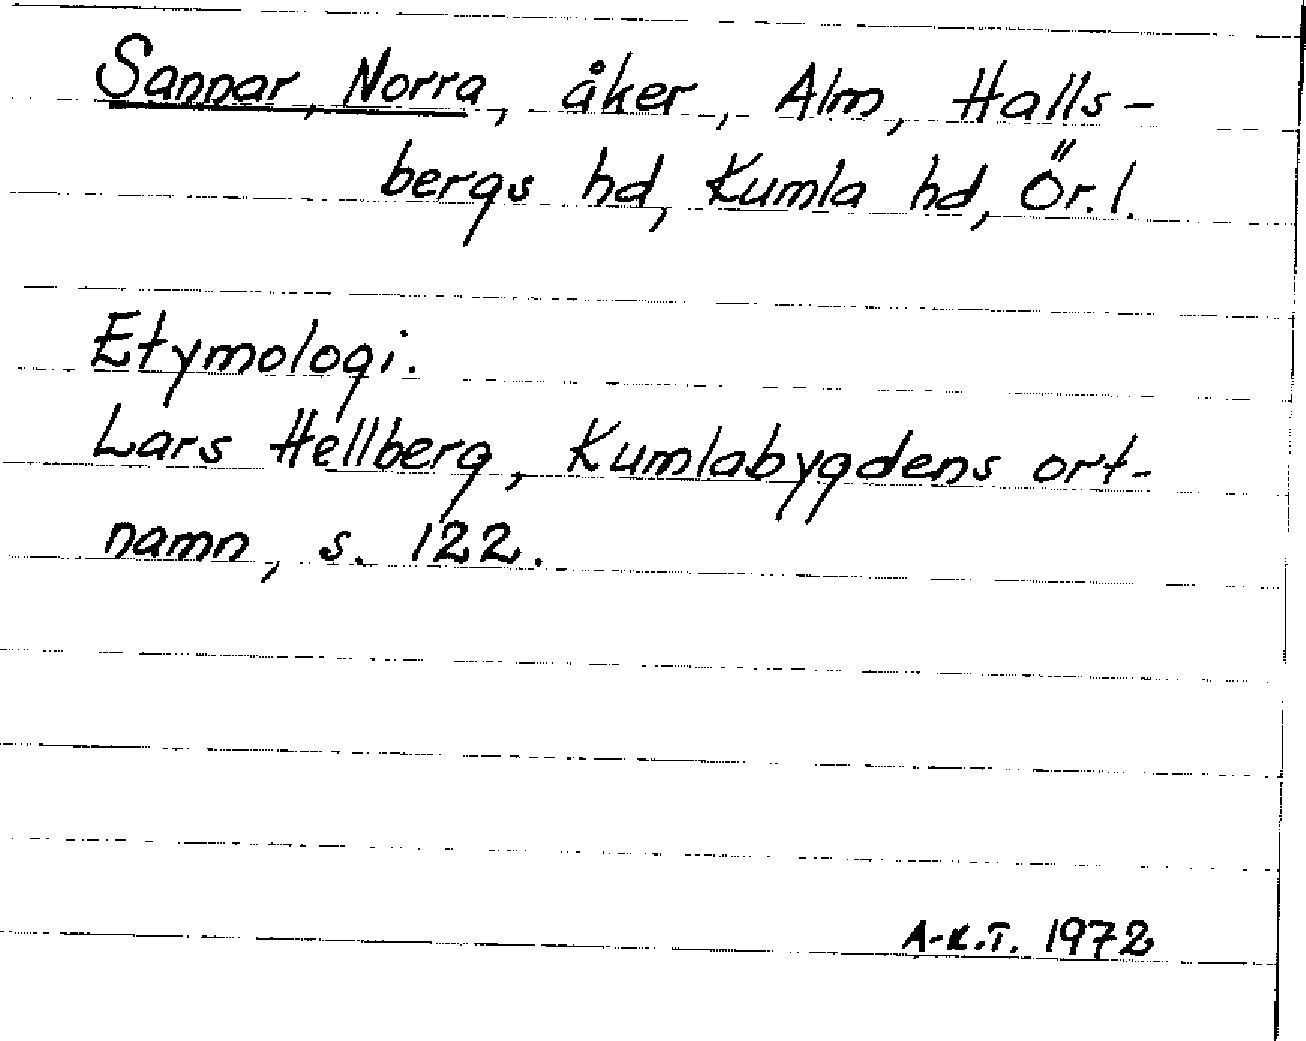 Sannar, Norra, åker, Alm, Halls-
bergs hd, Kumla hd, Ör. l.
Etymologi.
Lars Hellberg, Kumlabygdens ort-
namn, s. 122.
A-K.T. 1972